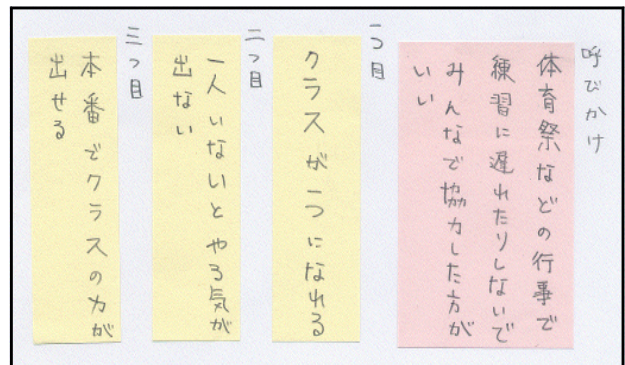 呼びかけ
体育祭などの行事で
練習に遅れたりしないで
みんなで協力した方が
いい
一つ目
クラスが一つになれる
二つ目
一人いないとやる気が
出ない
三つ目
本番でクラスの力が
出せる